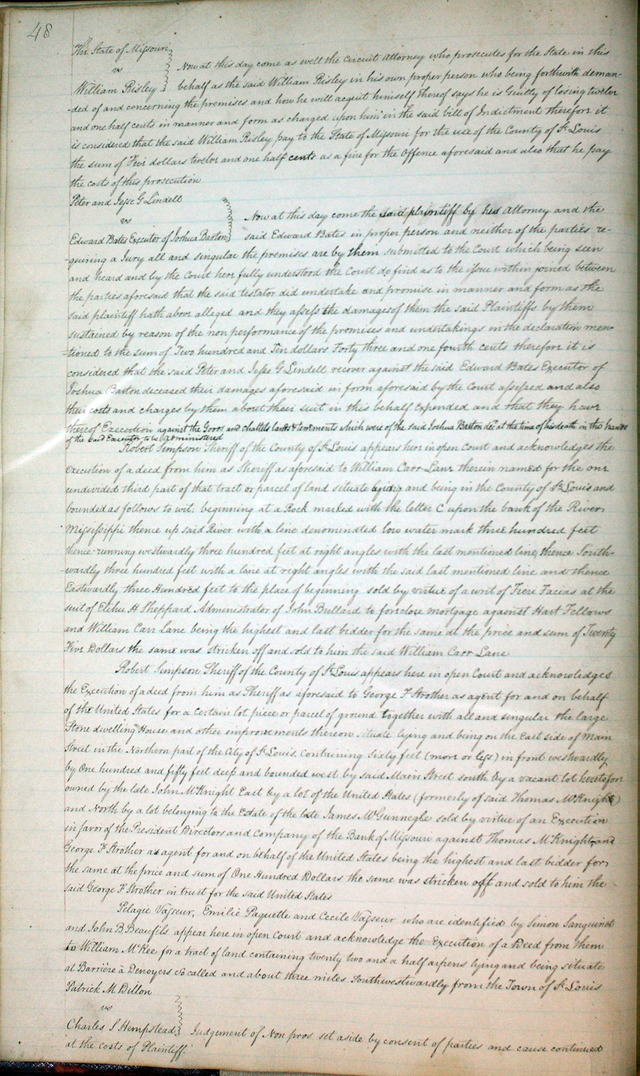 48
The State of Missouri
vs
William Risley
Now at this day come as well the Circuit Attorney who prosecutes for the State in this
behalf as the said William Risley in his own proper person who being forthwith deman-
ded of and concerning the premises and how he will acquit himself thereof says he is Guilty of losing twelve
and one half cents in manner and form as charged upon him in the said bill of Indictment therefore it
is considered that the said William Risley pay to the State of Missouri for the use of the County of St Louis
the sum of Five dollars twelve and one half cents as a fine for the Offence aforesaid and also that he pay
the costs of this prosecution
Peter and Jesse G Lindell
vs
Edward Bates Executor of Joshua Barton
Now at this day come the said plaintiff by his Attorney and the
said Edward Bates in proper person and neither of the parties re-
quiring a Jury all and singular the premises are by them submitted to the Court which being seen
and heard and by the Court here fully understood the Court do find as to the issue within joined between
the parties aforesaid that the said testator did undertake and promise in manner and form as the
said plaintiff hath above alleged and they assess the damages of them the said Plaintiffs by them
sustained by reason of the non performance of the promises and undertakings in the declaration men-
tioned to the sum of Two hundred and Ten dollars Forty three and one fourth cents therefore it is
considered that the said Peter and Jesse G Lindell recover against the said Edward Bates Executor of
Joshua Barton deceased their damages aforesaid in form aforesaid by the Court assessed and also
their costs and charges by them about their suit in this behalf expended and that they have
thereof Execution against the Goods and chattels lands & tenements which were of the said Joshua Barton decd at the time of his death in the hands
of the said Executor to be administered
Robert Simpson Sheriff of the County of St Louis appears here in open Court and acknowledges the
execution of a deed from him as Sheriff as aforesaid to William Carr Lane therein named for the one
undivided third part of that tract or parcel of land situate lying and being in the County of St Louis and
bounded as follows to wit, beginning at a Rock marked with the letter C upon the bank of the River
Mississippi thence up said River with a line denominated low water mark three hundred feet
thence running westwardly three hundred feet at right angles with the last mentioned line, thence South-
wardly three hundred feet with a line at right angles with the said last mentioned line and thence
Eastwardly three Hundred feet to the place of beginning sold by virtue of a writ of Fiere Facias at the
suit of Elihu H Sheppard Administrator of John Bullard to foreclose mortgage against Hart Fellows
and William Carr Lane being the highest and last bidder for the same at the price and sum of Twenty
Five Dollars the same was stricken off and sold to him the said William Carr Lane
Robert Simpson Sheriff of the County of St Louis appears here in open Court and acknowledges
the Execution of a deed from him as Sheriff as aforesaid to George F Strother as agent for and on behalf
of the United States for a certain lot piece or parcel of ground together with all and singular the large
Stone dwelling House and other improvements thereon situate lying and being on the East side of Main
Street in the Northern part of the City of St Louis. containing Sixty feet (more or less) in front westwardly
by One hundred and fifty feet deep and bounded west by said Main Street south by a vacant lot heretofore
owned by the late John McKnight East by a lot of the United States (formerly of said Thomas McKnight)
and North by a lot belonging to the Estate of the late James McGunnegle sold by virtue of an Execution
in favor of the President Directors and Company of the Bank of Missouri against Thomas McKnight and
George F Strother as agent for and on behalf of the United States being the highest and last bidder for
the same at the price and sum of One Hundred Dollars the same was stricken off and sold to him the
said George F Strother in trust for the said United States
Pelagie Vasseur, Emilie Paquette and Cecile Vasseur who are identified by Simon Sanguinet
and John B Beaufils appear here in open Court and acknowledge the Execution of a Deed from them
to William McKee for a tract of land containing twenty two and a half arpens lying and being situate
at Barrière à Denoyers so called and about three miles Southwestwardly from the Town of St Louis
Patrick M Dillon
vs
Charles S Hempstead
Judgement of Non pros set aside by consent of parties and cause continued
at the costs of Plaintiff.